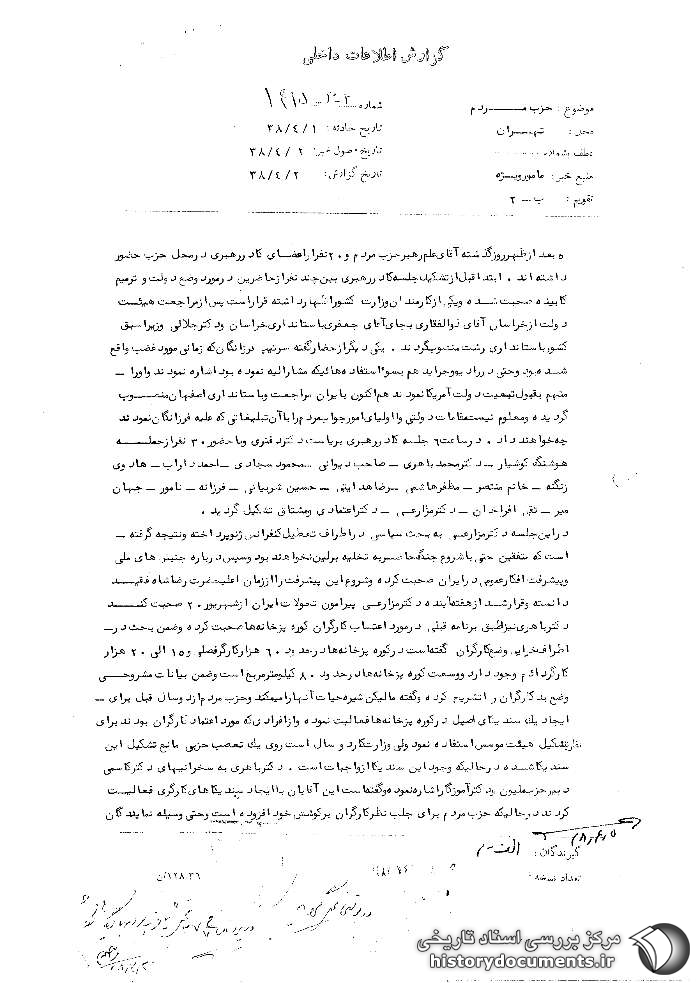 گزارش اطلاعات داخلی
موضوع : حزب مـــــردم
شماره
محل : تهــران
تاریخ حادثه : ۳۸/٤/۱
عطف بشماره
تاریخ وصول خبر: ۳۸/٤/۲
منبع خبر: مامورویــژه
تاریخ گزارش: ۳۸/٤/۲
تقویم : ب ــ ۲
۵ بعد از ظهرروزگذشته آقای علم رهبرحزب مردم و ۲۰ نفرازاعضای کادر رهبری درمحل حزب حضور
داشته اند . ابتدا قبل ازتشکیل جلسه کادر رهبری بین چند نفرازحاضرین درمورد وضع دولت و ترمیم
کابینه صحبت شده ویکی ازکارمندان وزارت کشوراظهارداشته قراراست پس ازمراجعت هیئت
دولت ازخراسان آقای ذوالفقاری بجای آقای جعفری باستانداری خراسان ودکترجلالی وزیرسابق
کشورباستانداری رشت منصوب گردند . یکی دیگرازحضارگفته سرتیپ فرزانگان که زمانی مورد غضب واقع
شده بود وحتی درراد یووجراید هم بسوءاستفاده هائیکه مشارالیه نموده بود اشاره نمودند واورا ــ
متهم بقبول تبعیت دولت آمریکا نمودند هم اکنون بایران مراجعت وباستانداری اصفهان منصــوب
گردیده ومعلوم نیست مقامات دولتی واولیای امورجواب مردم را با آن تبلیغاتی که علیه فرزانگان نمودند
چه خواهند داد . درساعت ٦ جلسه کادر رهبری بریاست دکتردفتری وبا حضور ۳۰ نفرازجملــــه
هوشنگ گوشیار ــ دکترمحمد باهری ــ صاحب دیوانی ــ محمود سجادی ــ احمد داراب ــ هادوی
زنگنه ــ خانم منتصر ــ مظفرهاشمی ــ رضاهدایتی ــ حسین شربیانی ــ فرزانه ــ نامور ــ جهان
میر ــ تقی افراخان ــ دکترمزارعی ــ دکتراعتمادی ومشتاق تشکیل گردید .
دراین جلسه دکترمزارعی به بحث سیاسی دراطراف تعطیل کنفرانس ژنوپرداخته ونتیجه گرفته ــ
است که متفقین حتی با شروع جنگ حاضربه تخلیه برلین نخواهند بود وسپس درباره جنبش های ملی
وپیشرفت افکارعمومی درایران صحبت کرده وشروع این پیشرفت را اززمان اعلیحضرت رضاشاه فقیــد
دانسته وقرارشد ازهفته آینده دکترمزارعی پیرامون تحولات ایران ازشهریور ۲۰ صحبت کنــــد
دکترباهری نیزطبق برنامه قبلی درمورد اعتصاب کارگران کوره پزخانه ها صحبت کرده وضمن بحث درــ
اطراف خرابی وضع کارگران گفته است درکوره پزخانه ها درحدود ٦۰ هزارکارگرفصلی و۱۵ الی ۲۰ هزار
کارگردائم وجود دارد ووسعت کوره پزخانه ها درحدود ۸۰ کیلومترمربع است وضمن بیانات مشروحــی
وضع بد کارگران را تشریح کرده وگفته مالکین شیره حیات آنها را میمکند وحزب مردم ازدوسال قبل برای ــ
ایجاد یک سندیکای اصیل درکوره پزخانه ها فعالیت نموده وازافرادی که مورد اعتماد کارگران بودند برای
تشکیل هیئت موسس استفاده نمود ولی وزارت کاردو سال است روی یک تعصب حزبی مانع تشکیل این
سندیکا شده درحالیکه وجود این سندیکا ازواجبات است . دکترباهری به سخرانیهای دکترکاسمی
دبیرحزب ملیون ودکترآموزگاراشاره نموده وگفته است این آقایان با ایجاد سندیکاهای کارگری فعالیــت
کردند درحالیکه حزب مردم برای جلب نظرکارگران برکوشش خود افزوده است وحتی وسیله نمایندگان
گیرندگان :
تعداد نسخه :
مرکز بررسی اسناد تاریخی
historydocuments.ir